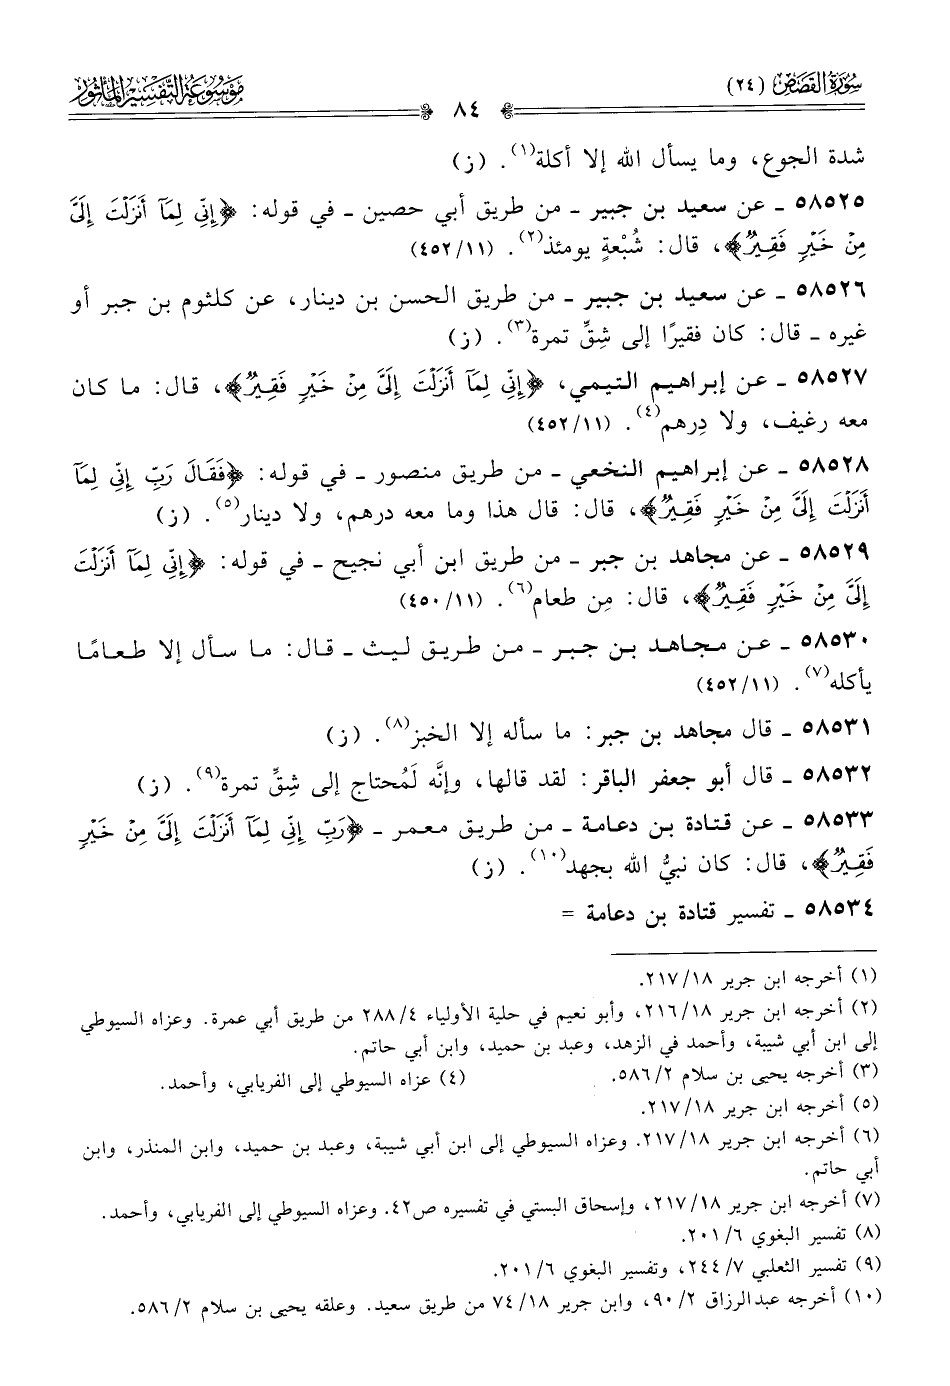 سُورَةُ القَصَصِ (٢٤)
٨٤
مَوْسُوعَةُ التَّفْسِيرِ المَأْثُورِ
شدة الجوع، وما يسأل الله إلا أكلة(١). (ز)
٥٨٥٢٥ ـ عن سعيد بن جبير ـ من طريق أبي حصين ـ في قوله: ﴿إِنِّي لِمَآ أَنزَلْتَ إِلَىَّ
مِنْ خَيْرٍ فَقِيرٌ﴾، قال: شُبْعةٍ يومئذ(٢). (٤٥٢/١١)
٥٨٥٢٦ ـ عن سعيد بن جبير ـ من طريق الحسن بن دينار، عن كلثوم بن جبر أو
غيره ـ قال: كان فقيرًا إلى شِقِّ تمرة(٣). (ز)
٥٨٥٢٧ ـ عن إبراهيم التيمي، ﴿إِنِّي لِمَآ أَنزَلْتَ إِلَىَّ مِنْ خَيْرٍ فَقِيرٌ﴾، قال: ما كان
معه رغيف، ولا دِرهم(٤). (٤٥٢/١١)
٥٨٥٢٨ ـ عن إبراهيم النخعي ـ من طريق منصور ـ في قوله: ﴿فَقَالَ رَبِّ إِنِّي لِمَآ
أَنزَلْتَ إِلَىَّ مِنْ خَيْرٍ فَقِيرٌ﴾، قال: قال هذا وما معه درهم، ولا دينار(٥). (ز)
٥٨٥٢٩ ـ عن مجاهد بن جبر ـ من طريق ابن أبي نجيح ـ في قوله: ﴿إِنِّي لِمَآ أَنزَلْتَ
إِلَىَّ مِنْ خَيْرٍ فَقِيرٌ﴾، قال: مِن طعام(٦). (٤٥٠/١١)
٥٨٥٣٠ ـ عن مجاهد بن جبر ـ من طريق ليث ـ قال: ما سأل إلا طعامًا
يأكله(٧). (٤٥٢/١١)
٥٨٥٣١ ـ قال مجاهد بن جبر: ما سأله إلا الخبز(٨). (ز)
٥٨٥٣٢ ـ قال أبو جعفر الباقر: لقد قالها، وإنَّه لَمُحتاج إلى شِقِّ تمرة(٩). (ز)
٥٨٥٣٣ ـ عن قتادة بن دعامة ـ من طريق معمر ـ ﴿رَبِّ إِنِّي لِمَآ أَنزَلْتَ إِلَىَّ مِنْ خَيْرٍ
فَقِيرٌ﴾، قال: كان نبيُّ الله بجهد(١٠). (ز)
٥٨٥٣٤ ـ تفسير قتادة بن دعامة =
(١) أخرجه ابن جرير ٢١٧/١٨.
(٢) أخرجه ابن جرير ٢١٦/١٨، وأبو نعيم في حلية الأولياء ٢٨٨/٤ من طريق أبي عمرة. وعزاه السيوطي
إلى ابن أبي شيبة، وأحمد في الزهد، وعبد بن حميد، وابن أبي حاتم.
(٣) أخرجه يحيى بن سلام ٥٨٦/٢. (٤) عزاه السيوطي إلى الفريابي، وأحمد.
(٥) أخرجه ابن جرير ٢١٧/١٨.
(٦) أخرجه ابن جرير ٢١٧/١٨. وعزاه السيوطي إلى ابن أبي شيبة، وعبد بن حميد، وابن المنذر، وابن
أبي حاتم.
(٧) أخرجه ابن جرير ٢١٧/١٨، وإسحاق البستي في تفسيره ص٤٢. وعزاه السيوطي إلى الفريابي، وأحمد.
(٨) تفسير البغوي ٢٠١/٦.
(٩) تفسير الثعلبي ٢٤٤/٧، وتفسير البغوي ٢٠١/٦.
(١٠) أخرجه عبدالرزاق ٩٠/٢، وابن جرير ٧٤/١٨ من طريق سعيد. وعلقه يحيى بن سلام ٥٨٦/٢.